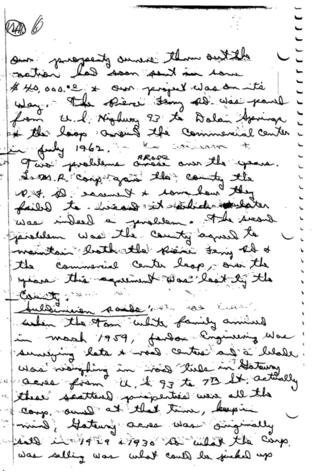 6
our property owners thru out the
nation had soon sent in some
$40,000.00 & our project was on its
way. The Pierce Ferry Rd. was paved
from U.S. Highway 93 to Dolan Springs
& the loop around the Commercial Center
in July 1962.
Two problems arose over the years.
L.M.R. Corp. gave the county the
P.F. Rd. easement & some how they
failed to record it which later
was indeed a problem. The second
problem was the County agreed to
maintain both the Pierce Ferry Rd &
the commercial center loop, over the
years this agreement was lost by the
County.
Subdivision roads:
When the Tom White family arrived
in March 1959, Jordon Engineering was
surveying lots & road centers and a blade
was roughing in road title in Gateway
acres from U.S. 93 to 7th St. actually
these scattered properties were all the
Corp. owned at that time, keep in
mind, Gateway acres was originally
sold in 1929 & 1930 so what the Corp.
was selling was what could be picked up